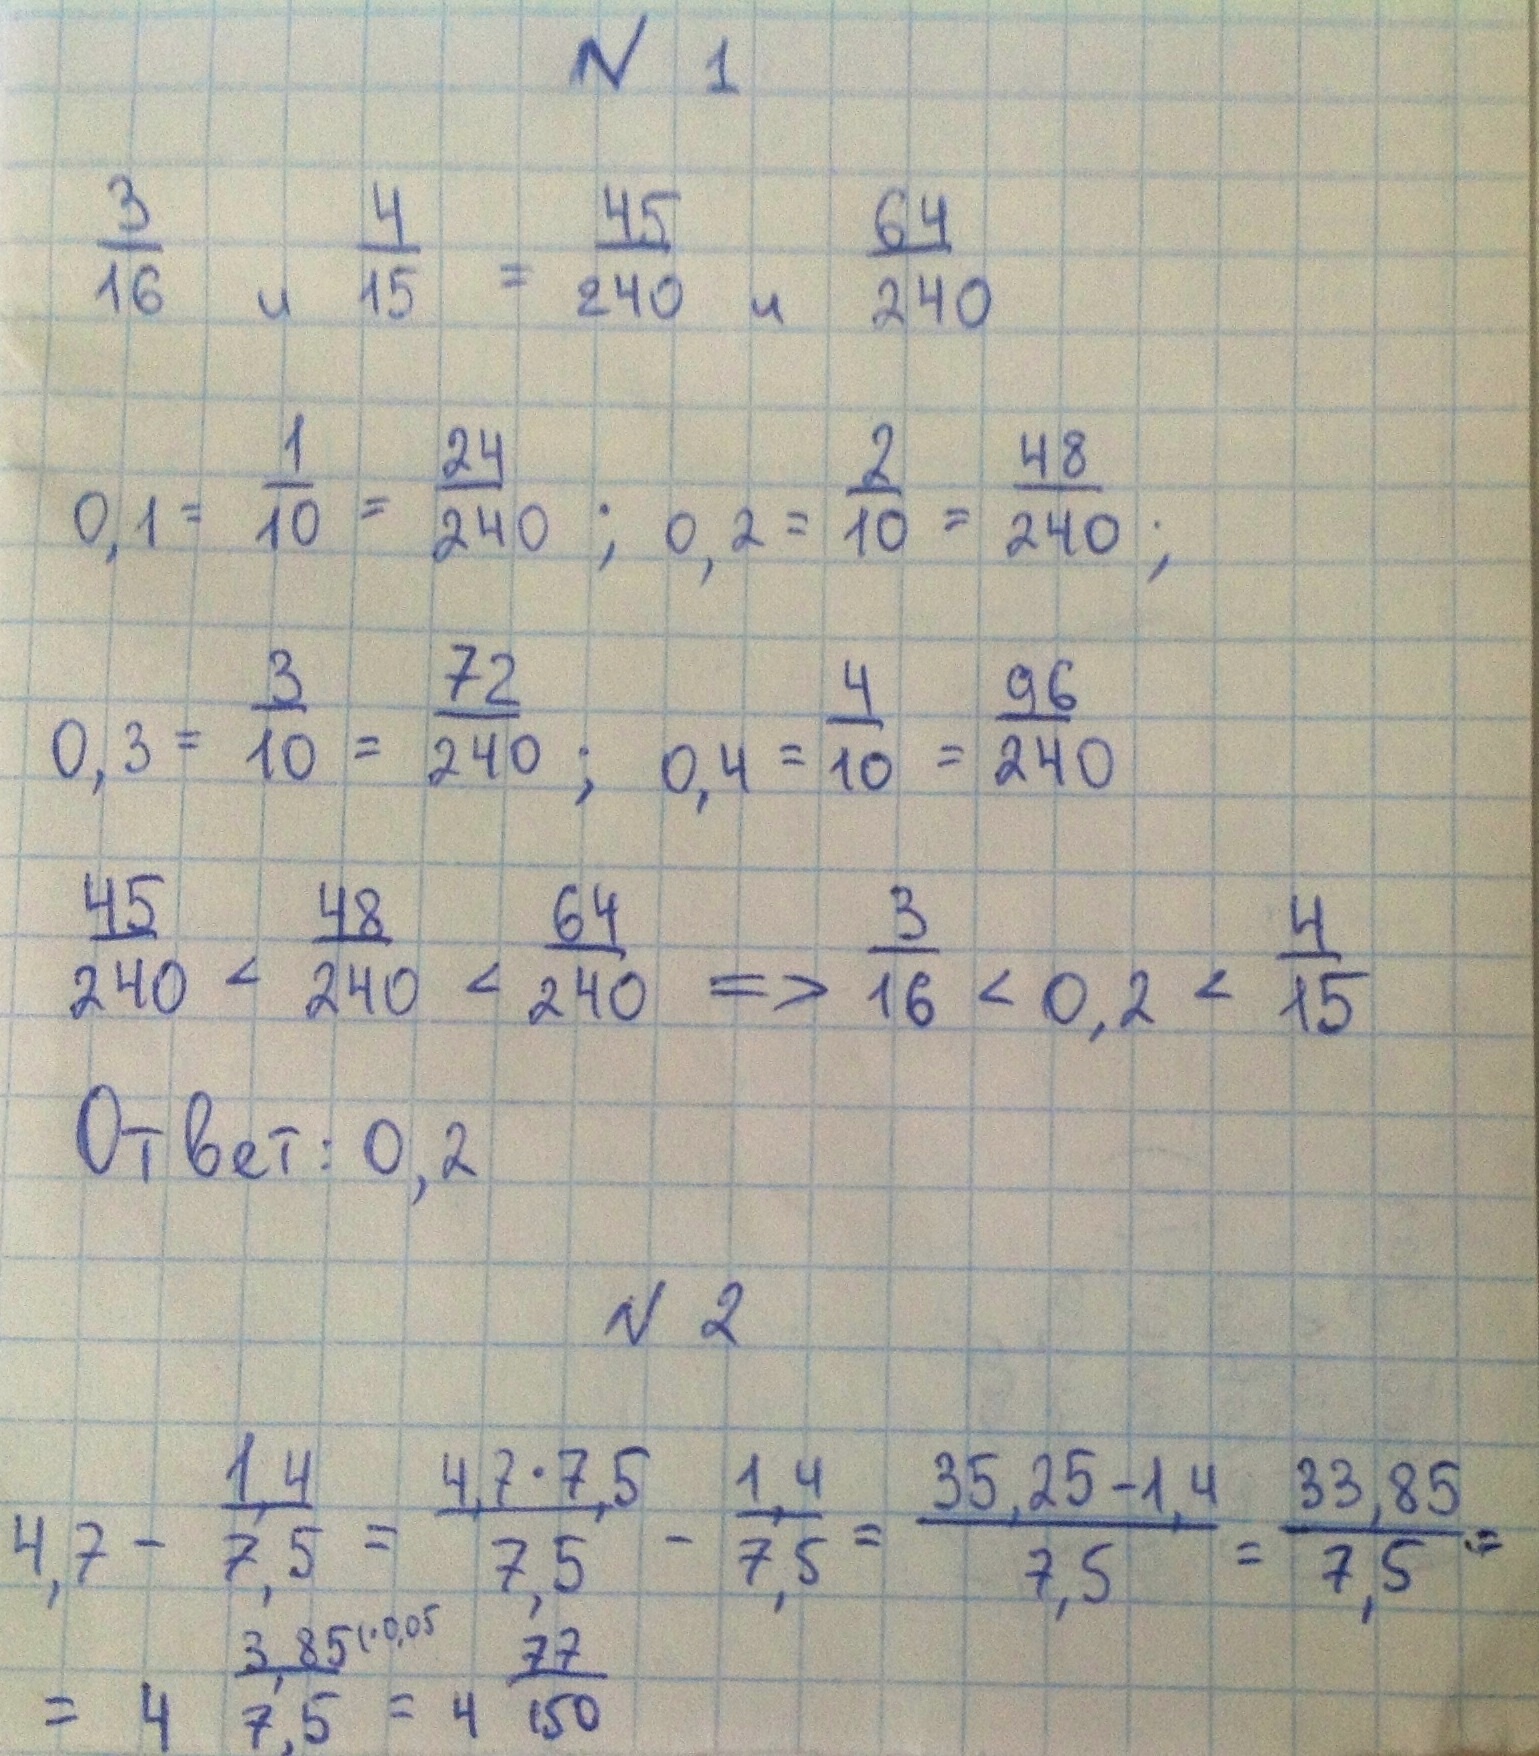 N 1
3/16 и 4/15 = 45/240 и 64/240
0,1 = 1/10 = 24/240 ; 0,2 = 2/10 = 48/240 ;
0,3 = 3/10 = 72/240 ; 0,4 = 4/10 = 96/240
45/240 < 48/240 < 64/240 => 3/16 < 0,2 < 4/15
Ответ: 0,2
N 2
4,7 - 1,4/7,5 = 4,7·7,5/7,5 - 1,4/7,5 = 35,25-1,4/7,5 = 33,85/7,5 =
= 4 3,85(:0,05/7,5 = 4 77/150